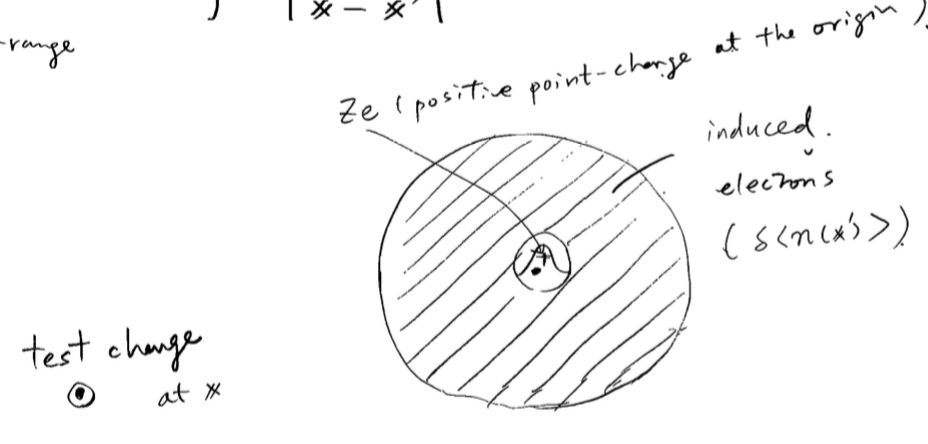 | 𝕩 - 𝕩' |
-range
Ze (positive point-charge at the origin).
induced.
elecrons
(δ<n(𝕩')>)
+
test charge
at 𝕩